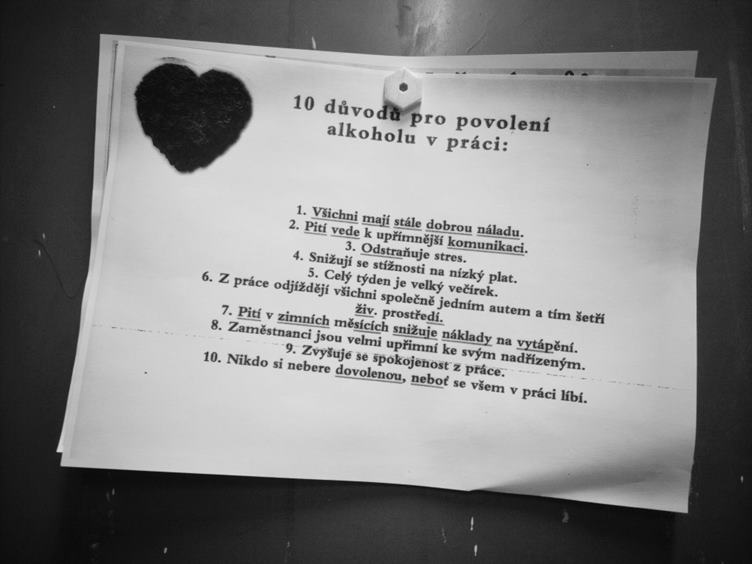 10 důvodů pro povolení
alkoholu v práci:
1. Všichni mají stále dobrou náladu.
2. Pití vede k upřímnější komunikaci.
3. Odstraňuje stres.
4. Snižují se stížnosti na nízký plat.
5. Celý týden je velký večírek.
6. Z práce odjíždějí všichni společně jedním autem a tím šetří
živ. prostředí.
7. Pití v zimních měsících snižuje náklady na vytápění.
8. Zaměstnanci jsou velmi upřimní ke svým nadřízeným.
9. Zvyšuje se spokojenost z práce.
10. Nikdo si nebere dovolenou, neboť se všem v práci líbí.